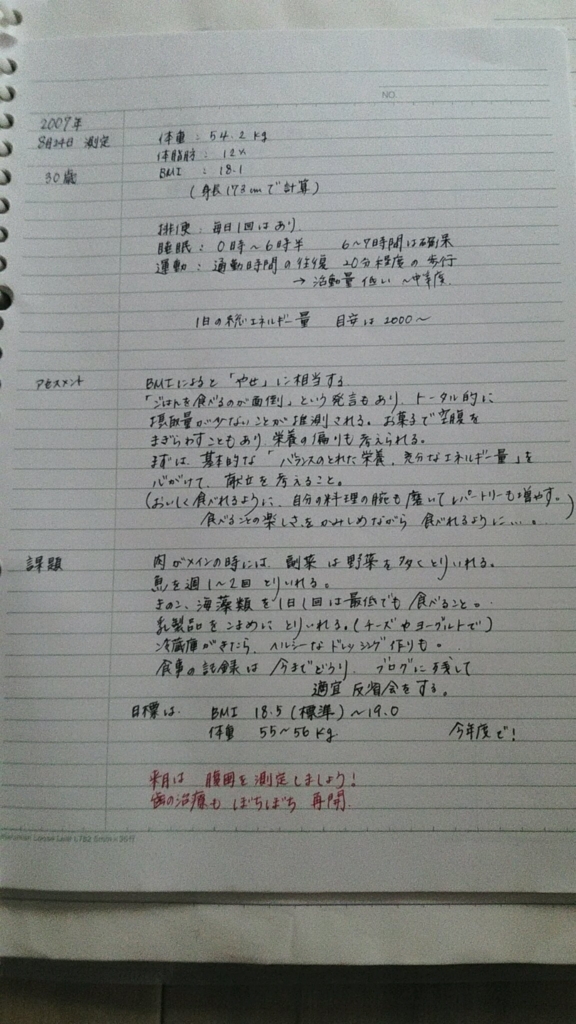 NO.
2009年
8月24日 測定
30歳
体重 : 54.2 kg
体脂肪 : 12%
BMI : 18.1
(身長173cmで計算)
排便 : 毎日1回はあり
睡眠 : 0時〜6時半 6〜7時間は確保
運動 : 通勤時間の往復 20分程度の歩行
→ 活動量 低い 〜中等度
1日の総エネルギー量 目安は 2000〜
アセスメント
BMIによると「やせ」に相当する
「ごはんを食べるのが面倒」という発言もあり、トータル的に
摂取量が少ないことが推測される。お菓子で空腹を
まぎらわすこともあり、栄養の偏りも考えられる。
まずは、基本的な「バランスのとれた栄養、充分なエネルギー量」を
心がけて、献立を考えること。
(おいしく食べれるように、自分の料理の腕も磨いてレパートリーも増やす。
食べることの楽しさをかみしめながら 食べれるように…。)
課題
肉がメインの時には、副菜は野菜を多くとりいれる。
魚を週1〜2回とりいれる。
きのこ、海藻類を1日1回は最低でも食べること。
乳製品をこまめにとりいれる。(チーズやヨーグルトで)
冷蔵庫がきたら、ヘルシーなドレッシング作りも。
食事の記録は今までどうり、ブログに残して
適宜反省会をする。
目標は BMI 18.5(標準)〜19.0
体重 55〜56kg 今年度で!
来月は 腹囲を測定しましょう!
歯の治療もぼちぼち 再開